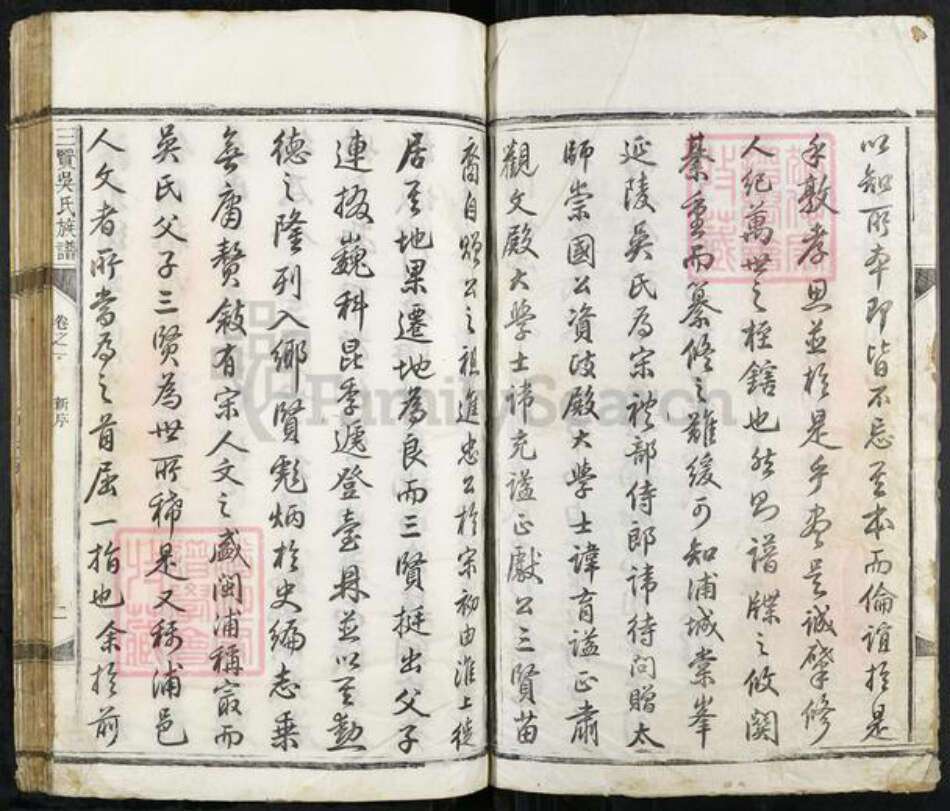 以知所本即皆不忘其本而倫誼於是
乎敦孝思並於是乎盡是誠肇修
人紀萬世之樞鎋也然則譜牒之攸關
綦重而纂修之難緩可知浦城棠峯
延陵吳氏為宋禮部侍郎諱待問贈太
師崇國公資政殿大學士諱育謚正肅
觀文殿大學士諱充謚正獻公三賢苗
裔自贈公之祖進忠公於宋初由淮上徙
居其地果遷地為良而三賢挺出父子
連掇巍科昆季遞登臺鼎並以其勳
德之隆列入鄉賢彪炳於史編志乘
無庸贅敘有宋人文之盛閩浦稱最而
吳氏父子三賢為世所稀是又稱浦邑
人文者所當為之首屈一指也余於前
三賢吳氏族譜
卷之
新序
二
FamilySearch